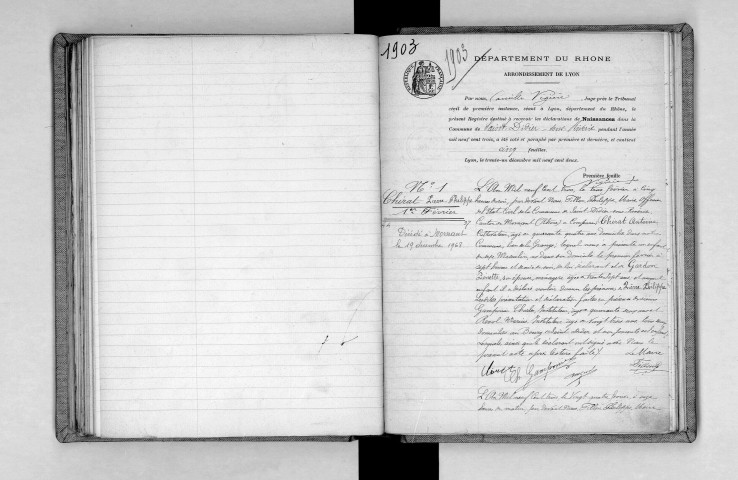 1903
1903
DÉPARTEMENT DU RHONE
ARRONDISSEMENT DE LYON
Par nous, Camille Juge près le Tribunal
civil de première instance, séant à Lyon, département du Rhône, le
présent Registre destiné à recevoir les déclarations de Naissances dans la
Commune de Saint Didier sous Riverie pendant l'année
mil neuf cent trois, a été coté et paraphé par première et dernière, et contient
cinq feuilles.
Lyon, le trente-un décembre mil neuf cent deux.
Première feuille
N° 1
Chirat Pierre Philippe
1er Février
Décédé à Mornant
le 19 décembre 1963
L'An Mil neuf Cent trois, le trois février à cinq
heures du soir, par devant Nous Philippe, Maire officier
de l'Etat Civil de la Commune de Saint Didier sous Riverie
Canton de Mornant (Rhône) a comparu Chirat Antoine
Cultivateur, âgé de quarante quatre ans domicilié dans cette
Commune, lieu de la Grange, lequel nous a présenté un enfant
du sexe Masculin, né dans son domicile le premier février à
sept heures et de lui déclarant et de
son épouse, ménagère âgée de trente sept ans et auquel
enfant il a déclaré vouloir donner les prénoms de Pierre Philippe
Lesdites présentation et déclaration faites en présence de Messieurs
Charles, Instituteur, âgé de quarante
Instituteur, âgé de vingt trois ans tous deux
domiciliés au Bourg de Saint Didier et non parents de
ainsi que le déclarant ont signé avec Nous le
présent acte après lecture faite.
Le Maire
Ch.
L'An Mil neuf Cent trois le vingt quatre février à onze
heures du matin, par devant Nous Philippe, Maire